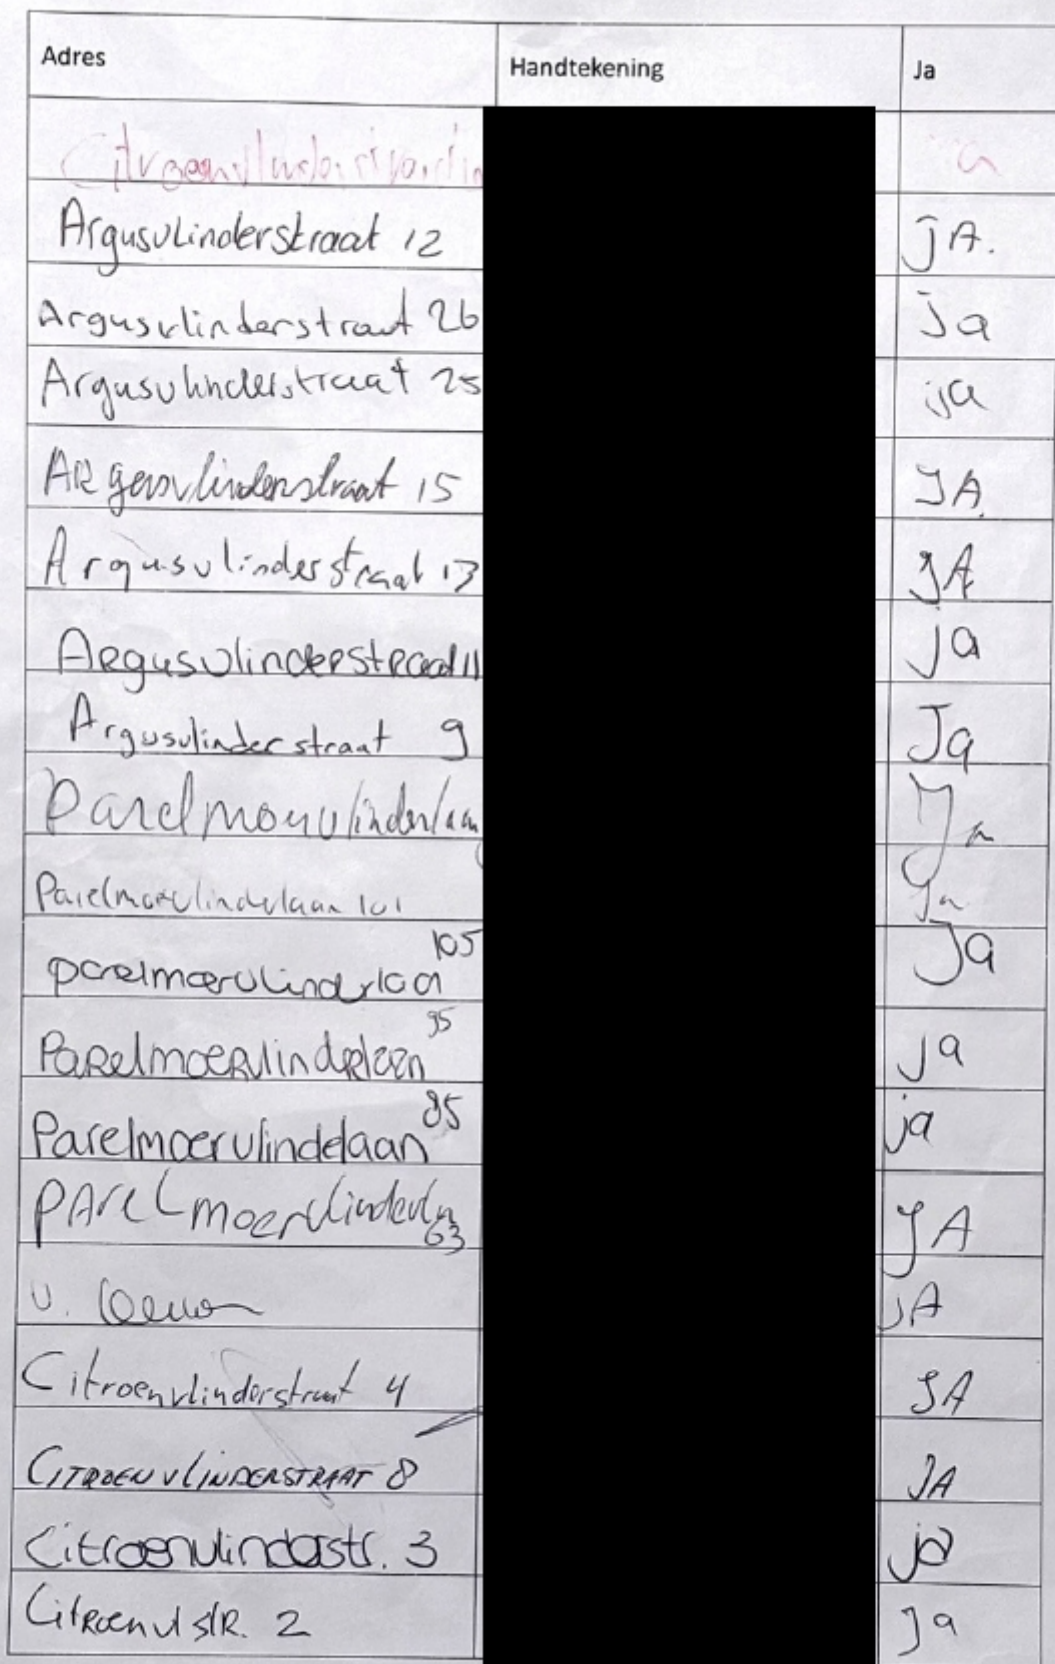 Adres Handtekening Ja
Argusvlinderstraat 12 jA.
Argusvlinderstraat 26 ja
Argusvlinderstraat 25 ja
ARgusvlinderstraat 15 JA
Argusvlinderstraat 13 JA
ARgusvlindeRstRaat 11 ja
Argusvlinderstraat 9 Ja
Parelmoervlinderlaan Ja
Parelmoervlindelaan 101 Ja
105
parelmoervlinderlaa Ja
95
PaRelmoeRvlindeRlaan ja
85
Parelmoervlindelaan ja
PArelmoervlinderln JA
63
v. jA
Citroenvlinderstraat 4 JA
CITROENVLINDERSTRAAT 8 JA
Citroenvlinderstr. 3 ja
CitRoenvlstR. 2 Ja